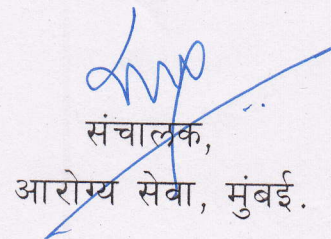 संचालक,
आरोग्य सेवा, मुंबई.